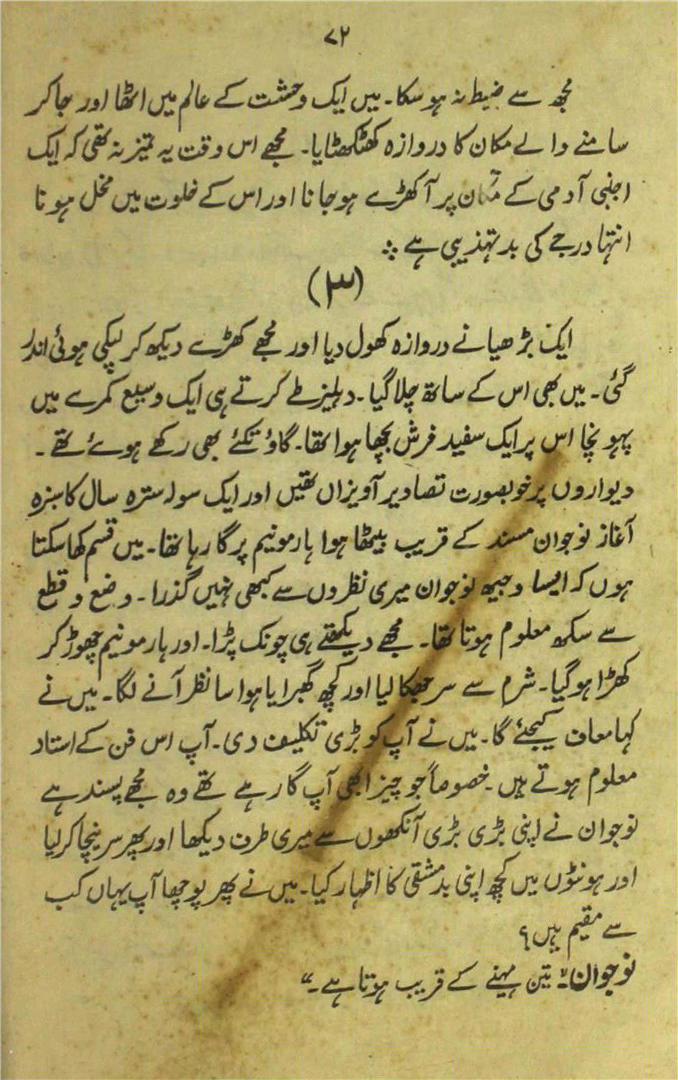 ۷۲
مجھ سے ضبط نہ ہوسکا۔ میں ایک وحشت کے عالم میں اٹھا اور جاکر
سامنے والے مکان کا دروازہ کھٹکھٹایا۔ مجھے اس وقت یہ تمیز نہ تھی کہ ایک
اجنبی آدمی کے مکان پر آکھڑے ہوجانا اور اس کے خلوت میں مخل ہونا
انتہا درجے کی بدتہذیبی ہے ❖
(۳)
ایک بڑھیا نے دروازہ کھول دیا اور مجھے کھڑے دیکھ کر لپکی ہوئی اندر
گئی۔ میں بھی اس کے ساتھ چلا گیا۔ دہلیز طے کرتے ہی ایک وسیع کمرے میں
پہونچا اس پر ایک سفید فرش بچھا ہوا تھا۔ گاؤ تکئے بھی رکھے ہوئے تھے۔
دیواروں پر خوبصورت تصاویر آویزاں تھیں اور ایک سولہ سترہ سال کا سبزہ
آغاز نوجوان مسند کے قریب بیٹھا ہوا ہارمونیم پر گا رہا تھا۔ میں قسم کھا سکتا
ہوں کہ ایسا وجیہ نوجوان میری نظروں سے کبھی نہیں گذرا۔ وضع و قطع
سے سکھ معلوم ہوتا تھا۔ مجھے دیکھتے ہی چونک پڑا۔ اور ہارمونیم چھوڑ کر
کھڑا ہوگیا۔ شرم سے سر جھکا لیا اور کچھ گھبرایا ہوا سا نظر آنے لگا۔ میں نے
کہا معاف کیجئے گا۔ میں نے آپ کو بڑی تکلیف دی۔ آپ اس فن کے استاد
معلوم ہوتے ہیں۔ خصوصاً جو چیز ابھی آپ گا رہے تھے وہ مجھے پسند ہے
نوجوان نے اپنی بڑی بڑی آنکھوں سے میری طرف دیکھا اور پھر سر نیچا کر لیا
اور ہونٹوں میں کچھ اپنی بدمشقی کا اظہار کیا۔ میں نے پھر پوچھا آپ یہاں کب
سے مقیم ہیں؟
نوجوان:۔ "تین مہینے کے قریب ہوتا ہے۔"